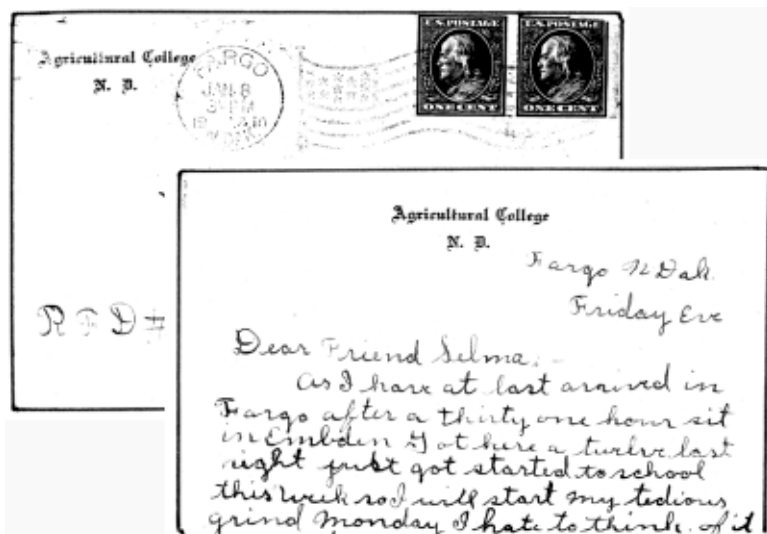 Agricultural College
N. D.
FARGO
JAN 8
N. DAK.
U.S. POSTAGE
ONE CENT
U.S. POSTAGE
ONE CENT
R F D #
Agricultural College
N. D.
Fargo N Dak.
Friday Eve
Dear Friend Selma: -
As I have at last arrived in
Fargo after a thirty one hour sit
in Embden Got here a twelve last
night just got started to school
this week so I will start my tedious
grind Monday I hate to think of it